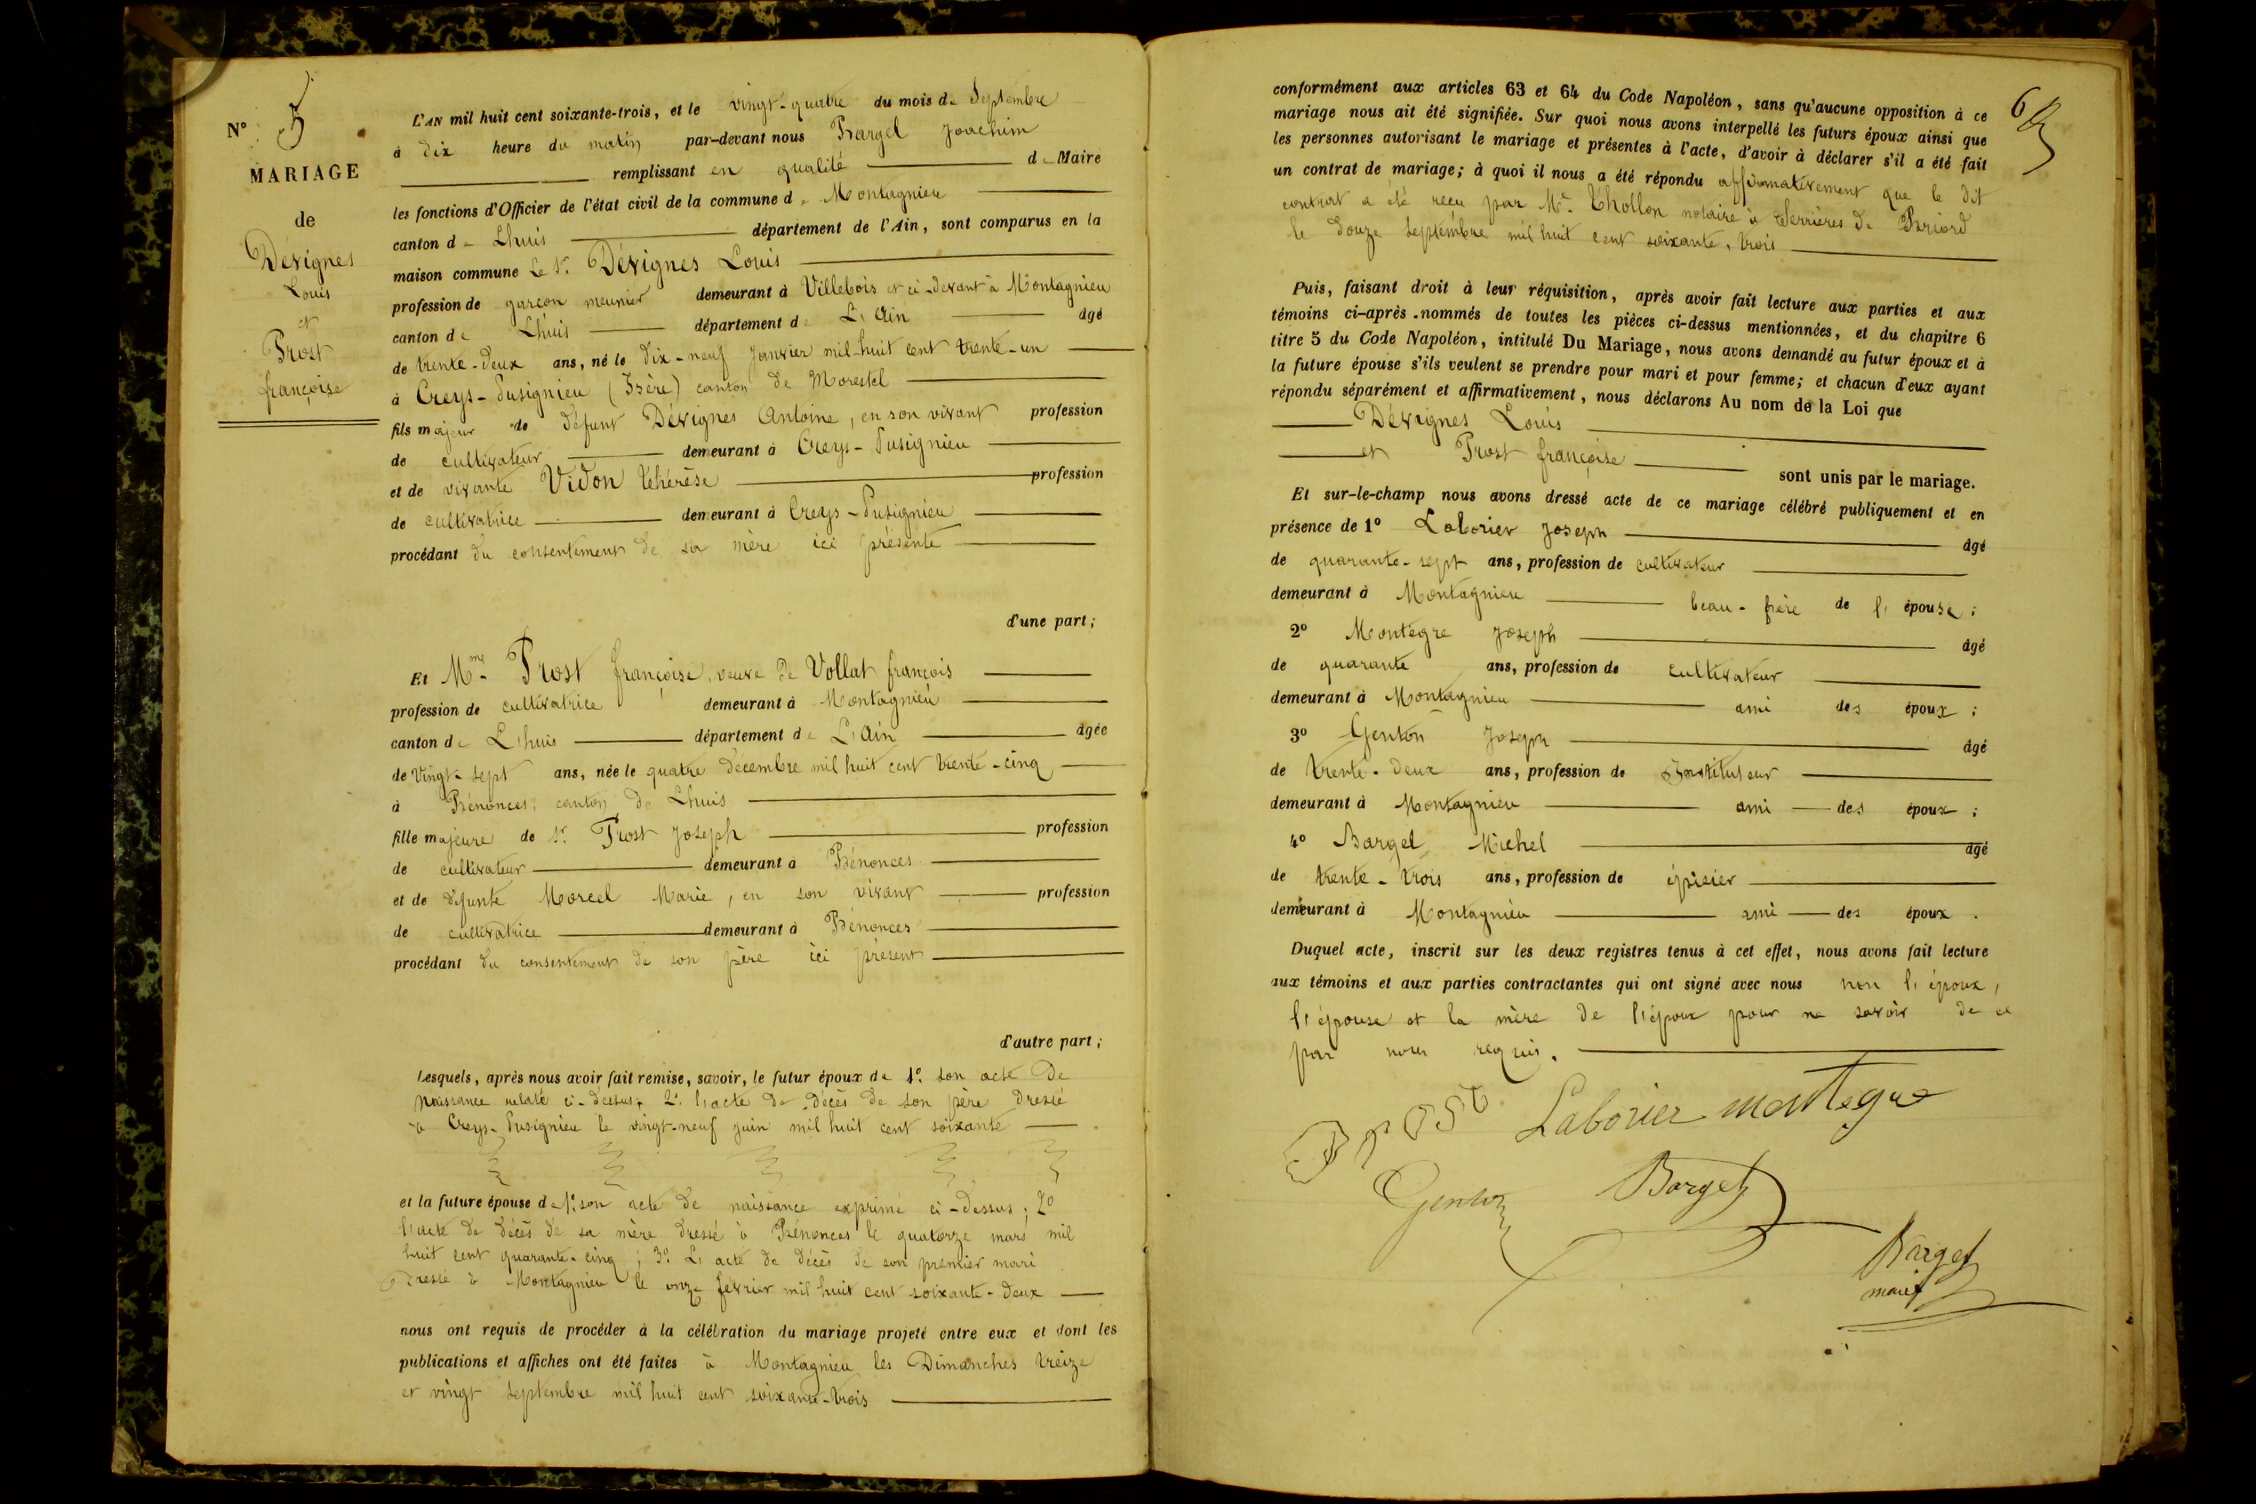 N° 5
MARIAGE
de
Dévignes
Louis
et
Prost
françoise
L'AN mil huit cent soixante-trois, et le vingt-quatre du mois de Septembre
à dix heure du matin par-devant nous Bargel Joachim
remplissant en qualité de Maire
les fonctions d'Officier de l'état civil de la commune de Montagnieu
canton de Lhuis département de l'Ain, sont comparus en la
maison commune Le Sr. Dévignes Louis
profession de garçon meunier demeurant à Villebois et ci-devant à Montagnieu
canton de Lhuis département de L'Ain âgé
de trente-deux ans, né le dix-neuf Janvier mil huit cent trente-un
à Creys-Pusignieu (Isère) canton de Morestel
fils majeur de défunt Dévignes Antoine, en son vivant profession
de cultivateur demeurant à Creys-Pusignieu
et de vivante Vidon Théhrèse profession
de cultivatrice demeurant à Creys-Pusignieu
procédant du consentement de sa mère ici présente
d'une part;
Et Mme Prost françoise, veuve de Vollat françois
profession de cultivatrice demeurant à Montagnieu
canton de L'huis département de L'Ain âgée
de Vingt-sept ans, née le quatre décembre mil huit cent trente-cinq
à Bénonces, canton de Lhuis
fille majeure de Sr. Prost Joseph profession
de cultivateur demeurant à Bénonces
et de défunte Morcel Marie, en son vivant profession
de cultivatrice demeurant à Bénonces
procédant du consentement de son père ici présent
d'autre part;
Lesquels, après nous avoir fait remise, savoir, le futur époux de 1° son acte de
naissance relaté ci-dessus, 2° l'acte de décès de son père dressé
à Creys-Pusignieu le vingt-neuf juin mil huit cent soixante
et la future épouse de 1° son acte de naissance exprimé ci-dessus; 2°
l'acte de décès de sa mère dressé à Bénonces le quatorze mars mil
huit cent quarante-cinq; 3° L'acte de décès de son premier mari
dressé à Montagnieu le onze février mil huit cent soixante-deux
nous ont requis de procéder à la célébration du mariage projeté entre eux et dont les
publications et affiches ont été faites à Montagnieu les Dimanches treize
et vingt septembre mil huit cent soixante-trois
conformément aux articles 63 et 64 du Code Napoléon, sans qu'aucune opposition à ce
mariage nous ait été signifiée. Sur quoi nous avons interpellé les futurs époux ainsi que
les personnes autorisant le mariage et présentes à l'acte, d'avoir à déclarer s'il a été fait
un contrat de mariage; à quoi il nous a été répondu affirmativement que le dit
contrat a été reçu par Me. Thollon notaire à Serrières de Briord
le douze septembre mil huit cent soixante-trois
Puis, faisant droit à leur réquisition, après avoir fait lecture aux parties et aux
témoins ci-après nommés de toutes les pièces ci-dessus mentionnées, et du chapitre 6
titre 5 du Code Napoléon, intitulé Du Mariage, nous avons demandé au futur époux et à
la future épouse s'ils veulent se prendre pour mari et pour femme; et chacun d'eux ayant
répondu séparément et affirmativement, nous déclarons Au nom de la Loi que
Dévignes Louis
et Prost françoise
sont unis par le mariage.
Et sur-le-champ nous avons dressé acte de ce mariage célébré publiquement et en
présence de 1° Laborier Joseph âgé
de quarante-sept ans, profession de cultivateur
demeurant à Montagnieu beau-frère de l'épouse;
2° Montègre Joseph âgé
de quarante ans, profession de cultivateur
demeurant à Montagnieu ami des époux;
3° Genton Joseph âgé
de trente-deux ans, profession de Instituteur
demeurant à Montagnieu ami des époux;
4° Bargel Michel âgé
de trente-trois ans, profession de épicier
demeurant à Montagnieu ami des époux.
Duquel acte, inscrit sur les deux registres tenus à cet effet, nous avons fait lecture
aux témoins et aux parties contractantes qui ont signé avec nous non l'époux,
l'épouse et la mère de l'époux pour ne savoir de ce
par nous requis.
Prost Laborier montegre
Genton Bargel
Bargel
maire